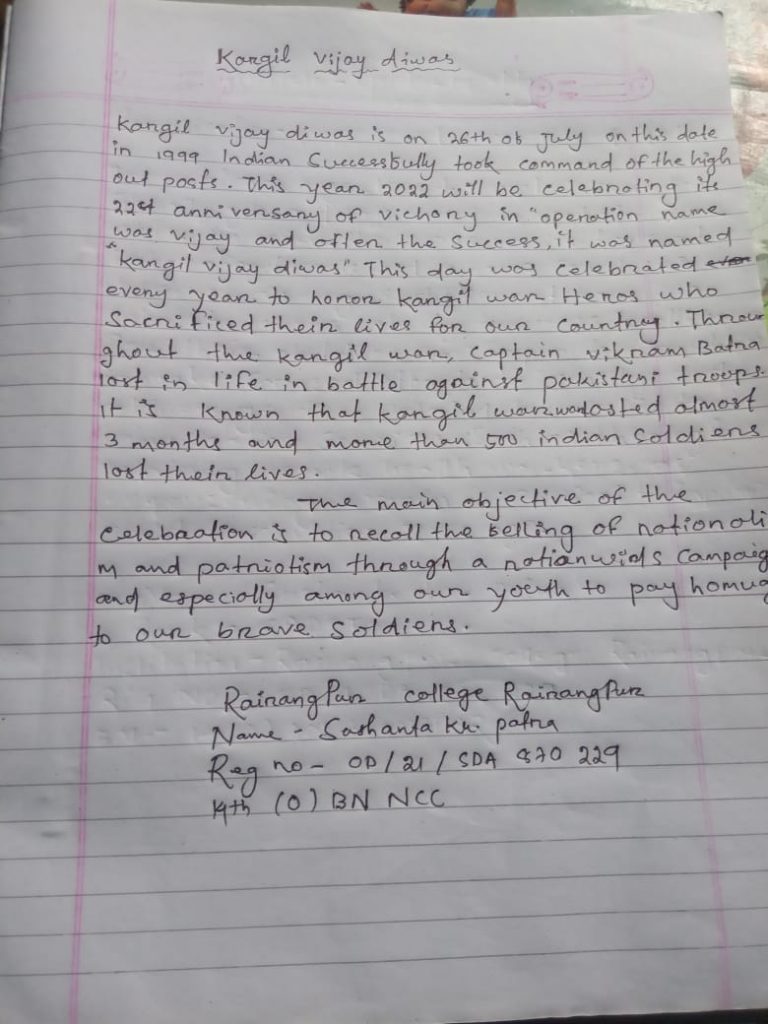 Kargil vijay diwas
Kargil vijay diwas is on 26th of July on this date
in 1999 Indian Successfully took command of the high
out posts. This year 2022 will be celebrating its
22st anniversary of vichory in "operation name
was vijay and after the success, it was named
"kargil vijay diwas" This day was celebrated
every year to honor kargil war Heros who
Sacrificed their lives for our country. Throu
ghout the kargil war, Captain vikram Batra
lost in life in battle against pakistani troops.
it is known that kargil war lasted almost
3 months and more than 500 indian soldiers
lost their lives.
The main objective of the
celebration is to recall the felling of nationali
m and patriotism through a nationwids campaig
and especially among our youth to pay homug
to our brave soldiers.
Rairangpur college Rairangpur
Name - Sashanta Kr. patra
Reg no - OD/21/SDA 870 229
14th (O) BN NCC